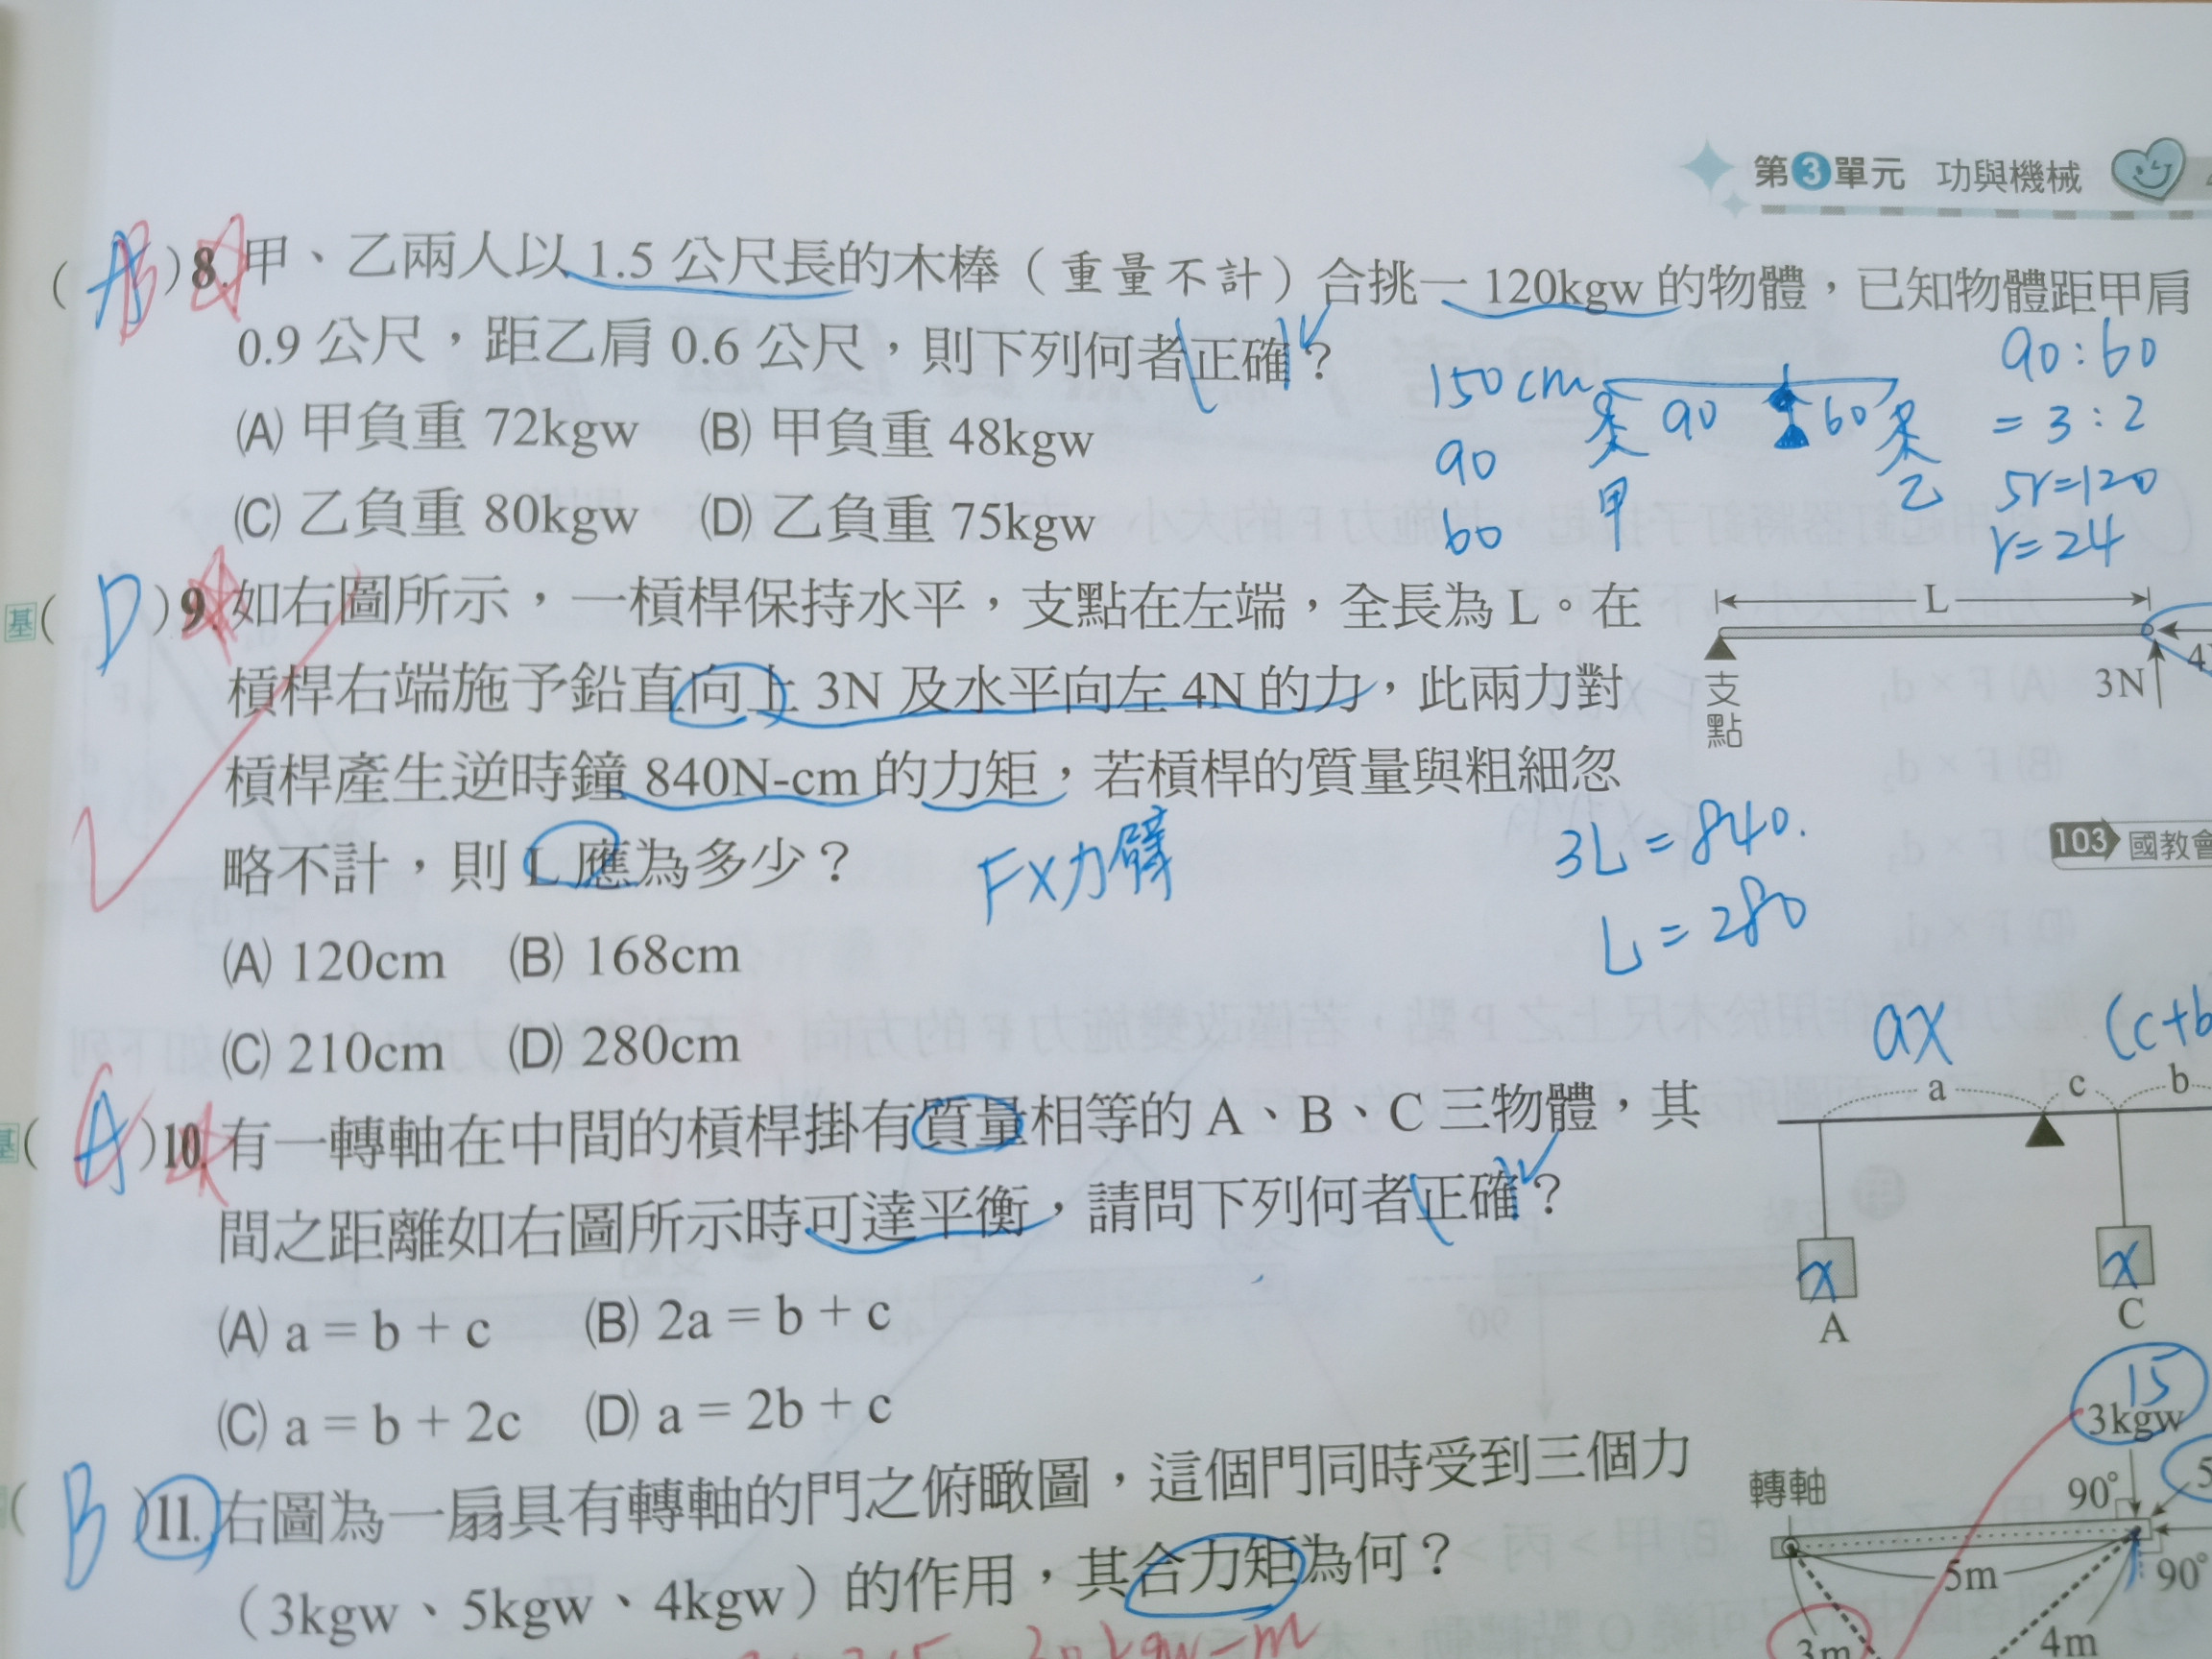 第3單元 功與機械
(AB)8.甲、乙兩人以1.5公尺長的木棒(重量不計)合挑一120kgw的物體,已知物體距甲肩
0.9公尺,距乙肩0.6公尺,則下列何者正確?
(A) 甲負重 72kgw (B) 甲負重 48kgw
(C) 乙負重 80kgw (D) 乙負重 75kgw
150cm
90
60
90 60
甲 乙
90:60
=3:2
5r=120
r=24
基(D)9.如右圖所示,一槓桿保持水平,支點在左端,全長為L。在
槓桿右端施予鉛直向上 3N 及水平向左 4N 的力,此兩力對
槓桿產生逆時鐘 840N-cm 的力矩,若槓桿的質量與粗細忽
略不計,則 L 應為多少?
(A) 120cm (B) 168cm
(C) 210cm (D) 280cm
L
支點
3N
4
F×力臂
3L=840.
L=280
103 國教會
基(A)10.有一轉軸在中間的槓桿掛有質量相等的A、B、C三物體,其
間之距離如右圖所示時可達平衡,請問下列何者正確?
(A) a = b + c (B) 2a = b + c
(C) a = b + 2c (D) a = 2b + c
ax (c+b
a c b
x x
A C
(B)11.右圖為一扇具有轉軸的門之俯瞰圖,這個門同時受到三個力
(3kgw、5kgw、4kgw)的作用,其合力矩為何?
15
3kgw
5
轉軸 90°
5m 90°
3m 4m
kgw-m